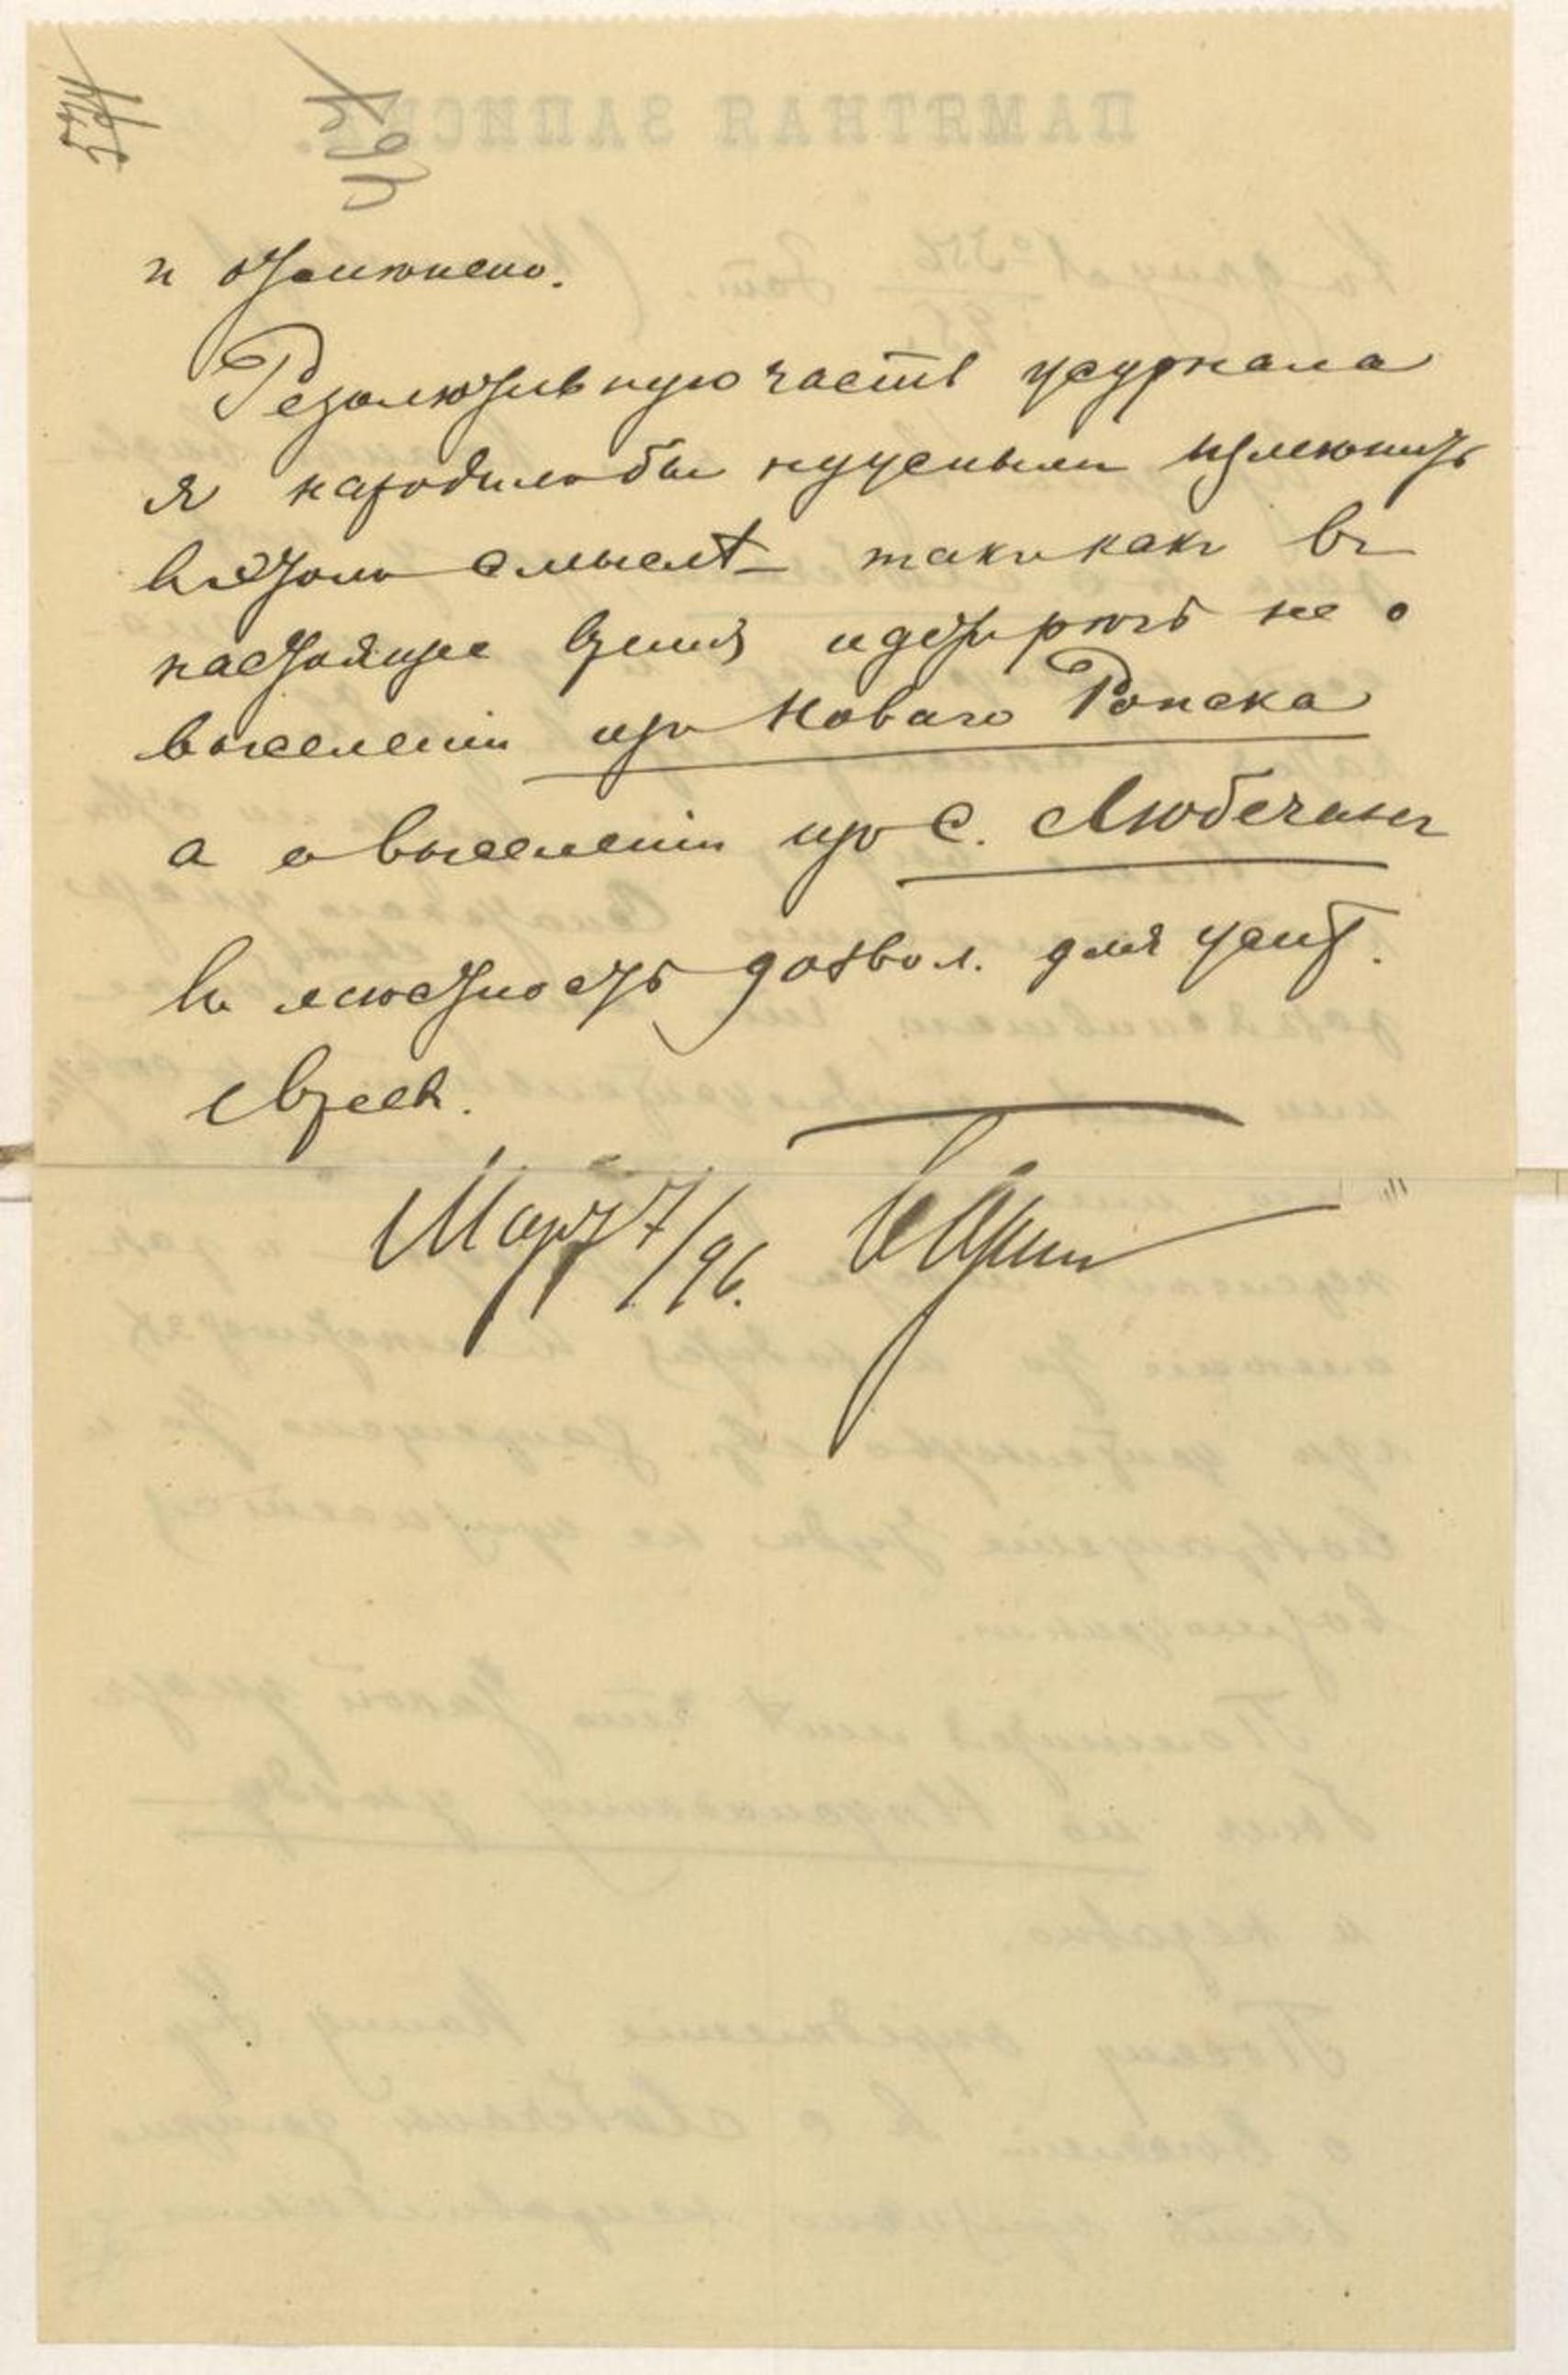 и отмѣнено.
Резолютивную часть журнала
я находилъ бы нужнымъ измѣнить
въ этомъ смыслѣ такъ какъ въ
настоящее время идетъ рѣчь не о
выселеніи изъ Новаго Ропска
а о выселеніи изъ с. Любечань
въ мѣстность дозвол. для жит.
евреев.
Март 7/96.